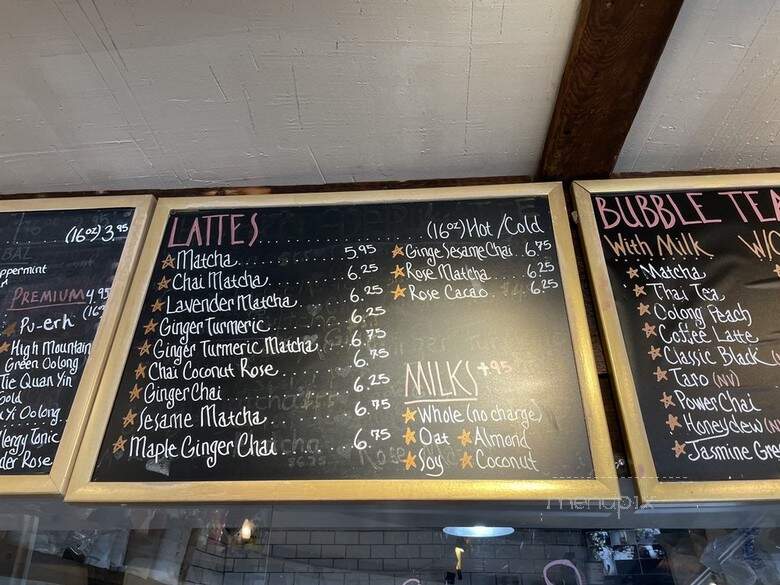 (16oz) 3.95
PREMIUM 4.95
Pu-erh
High Mountain
Green Oolong
Tie Quan Yin
Yi Oolong
Tonic
Rose
LATTES (16oz) Hot/Cold
Matcha 5.95
Chai Matcha 6.25
Lavender Matcha 6.25
Ginger Turmeric 6.25
Ginger Turmeric Matcha 6.75
Chai Coconut Rose 6.75
Ginger Chai 6.25
Sesame Matcha 6.75
Maple Ginger Chai 6.75
Ginge Sesame Chai 6.75
Rose Matcha 6.25
Rose Cacao 6.25
MILKS +.95
Whole (no charge)
Oat Almond
Soy Coconut
BUBBLE TEA
With Milk
Matcha
Thai Tea
Oolong Peach
Coffee Latte
Classic Black
Taro (NV)
Power Chai
Honeydew
Jasmine
menupix